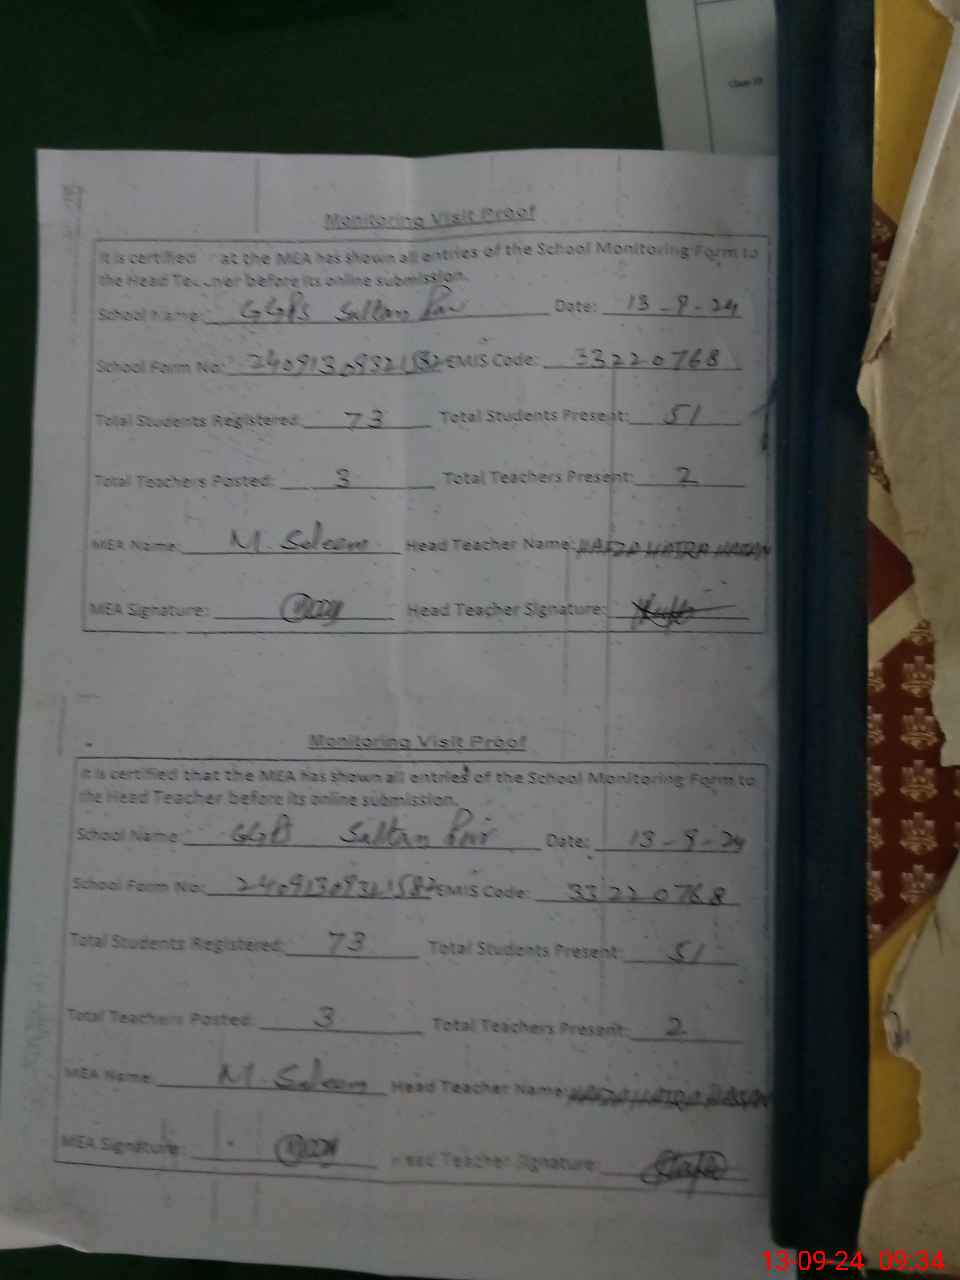 Class
Monitoring Visit Proof
It is certified at the MEA has shown all entries of the School Monitoring Form to
the Head Teacher before its online submission.
School Name: GGPS Sultan Pur Date: 13-9-24
School Form No: 24091309321582 EMIS Code: 33220768
Total Students Registered: 73 Total Students Present: 51
Total Teachers Posted: 3 Total Teachers Present: 2
MEA Name: M. Saleem Head Teacher Name:
MEA Signature: Head Teacher Signature:
Monitoring Visit Proof
It is certified that the MEA has shown all entries of the School Monitoring Form to
the Head Teacher before its online submission.
School Name: GGPS Sultan Pur Date: 13-9-24
School Form No: 24091309321582 EMIS Code: 33220768
Total Students Registered: 73 Total Students Present: 51
Total Teachers Posted: 3 Total Teachers Present: 2
MEA Name: M. Saleem Head Teacher Name:
MEA Signature: Head Teacher Signature:
13-09-24 09:34